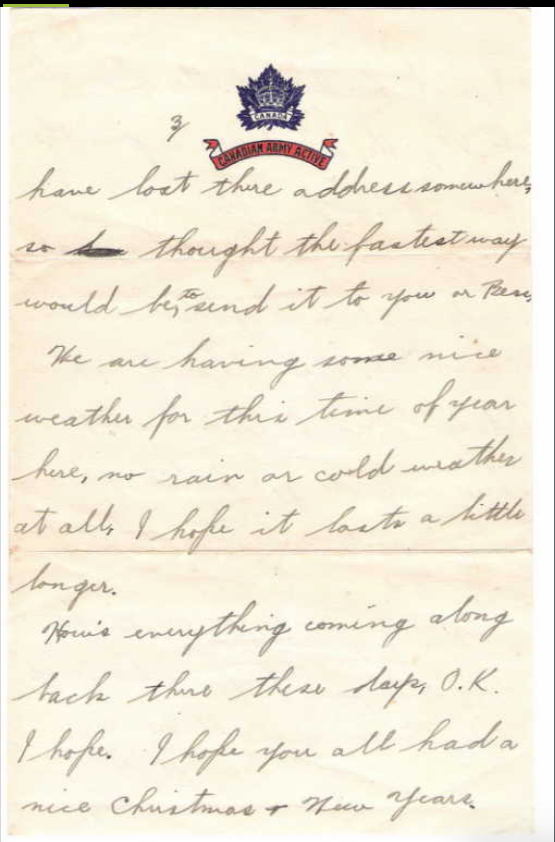 3/
CANADA
CANADIAN ARMY ACTIVE
have lost there address somewhere,
so thought the fastest way
would be, to send it to you or Bess.
We are having some nice
weather for this time of year
here, no rain or cold weather
at all, I hope it lasts a little
longer.
How's everything coming along
back there these days, O.K.
I hope. I hope you all had a
nice Christmas + New Years.